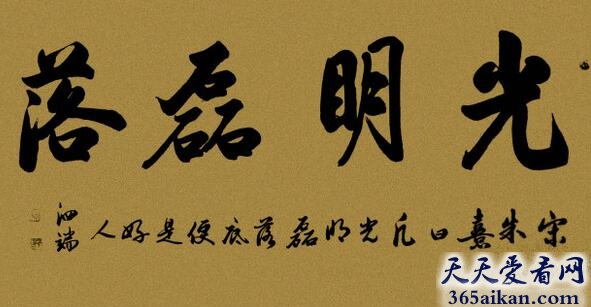 光明磊落
宋朱熹曰凡光明磊落底便是好人
泗瑞
天天爱看网
365aikan.com